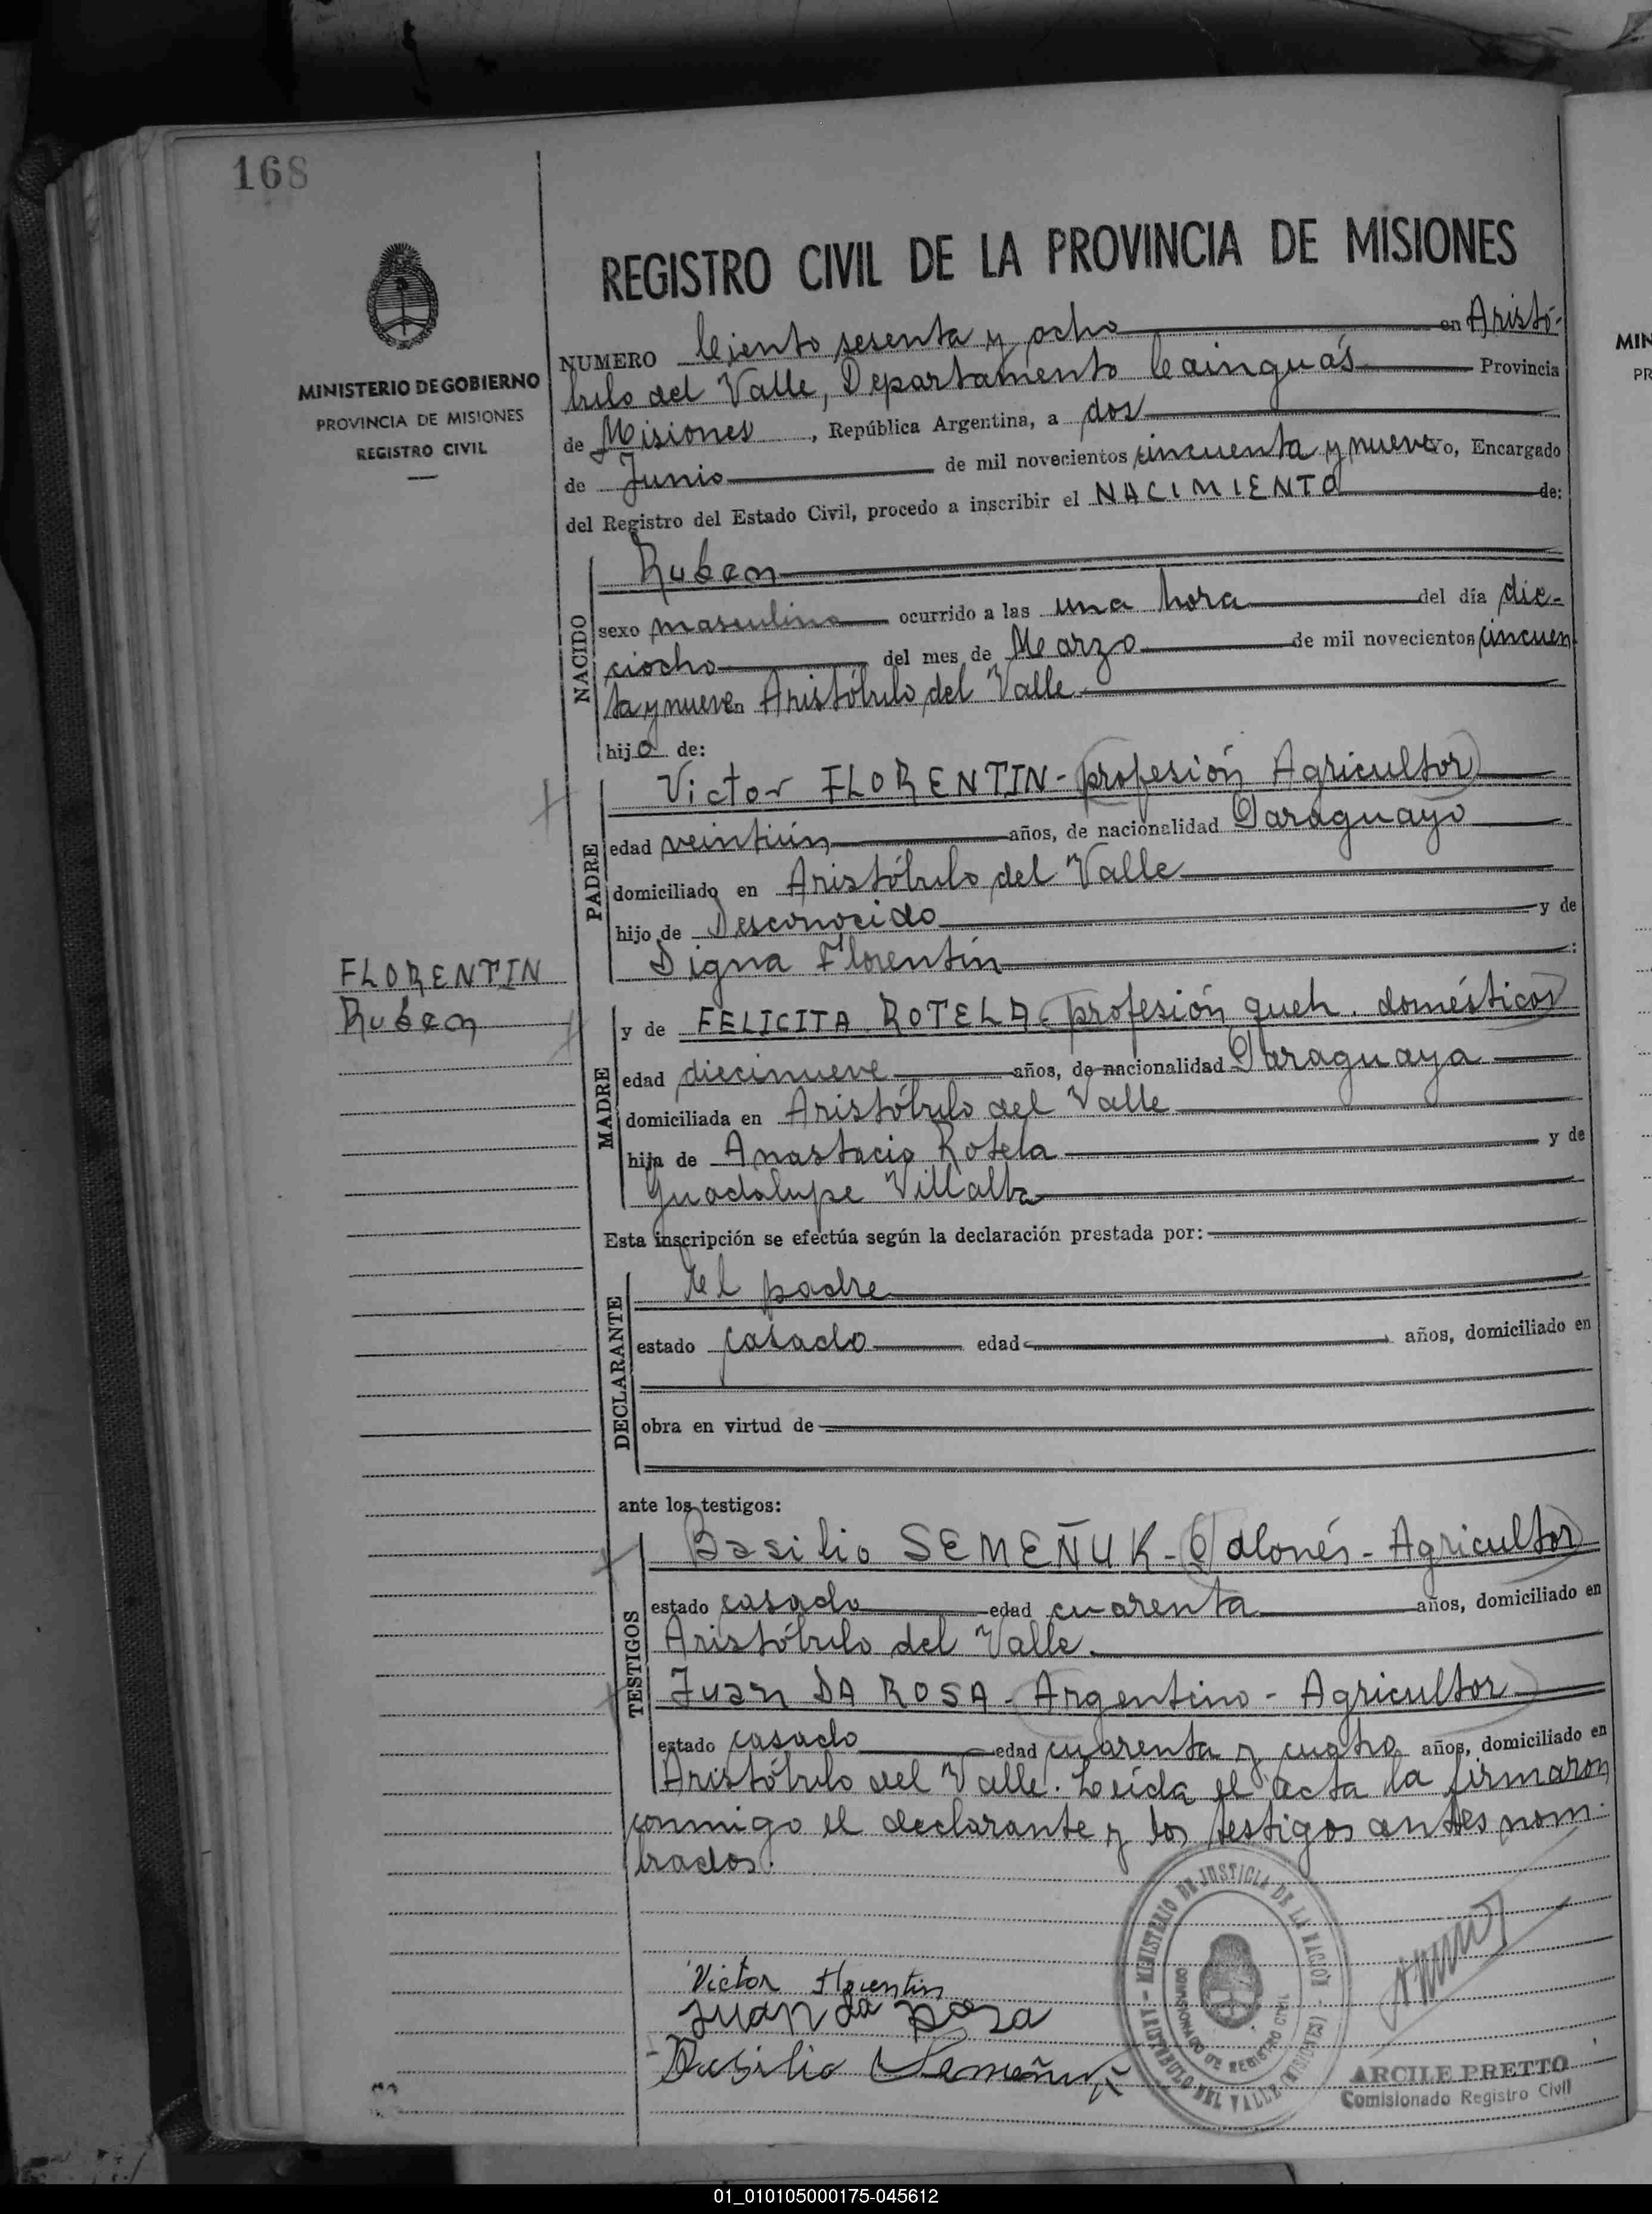 168
MINISTERIO DE GOBIERNO
PROVINCIA DE MISIONES
REGISTRO CIVIL
REGISTRO CIVIL DE LA PROVINCIA DE MISIONES
NUMERO Ciento sesenta y ocho en Aristó-
bulo del Valle, Departamento Cainguás Provincia
de Misiones, República Argentina, a dos
de Junio de mil novecientos cincuenta y nueve Yo, Encargado
del Registro del Estado Civil, procedo a inscribir el NACIMIENTO de:
NACIDO
Ruben
sexo masculino ocurrido a las una hora del día die-
ciocho del mes de Marzo de mil novecientos cincuen
ta y nueve en Aristóbulo del Valle
hijo de:
PADRE
Victor FLORENTIN - profesión Agricultor
edad veintiún años, de nacionalidad Paraguayo
domiciliado en Aristóbulo del Valle
hijo de Desconocido y de
Digna Florentín
FLORENTIN
Ruben
MADRE
y de FELICITA ROTELA - profesión queh. domésticos
edad diecinueve años, de nacionalidad Paraguaya
domiciliada en Aristóbulo del Valle
hija de Anastacio Rotela y de
Guadalupe Villalba
Esta inscripción se efectúa según la declaración prestada por:
DECLARANTE
el padre
estado casado edad años, domiciliado en
obra en virtud de
ante los testigos:
TESTIGOS
Basilio SEMEÑUK - Polonés - Agricultor
estado casado edad cuarenta años, domiciliado en
Aristóbulo del Valle.
Juan DA ROSA - Argentino - Agricultor
estado casado edad cuarenta y cuatro años, domiciliado en
Aristóbulo del Valle. Leída el acta la firmaron
conmigo el declarante y los testigos antes nom-
brados.
Victor Florentin
Juan da Rosa
Basilio Semeñuk
MINISTERIO DE JUSTICIA DE LA NACION - ARISTOBULO DEL VALLE (MISIONES) -
COMISIONADO DE REGISTRO CIVIL
ARCILE PRETTO
Comisionado Registro Civil
MIN
PR
01_010105000175-045612